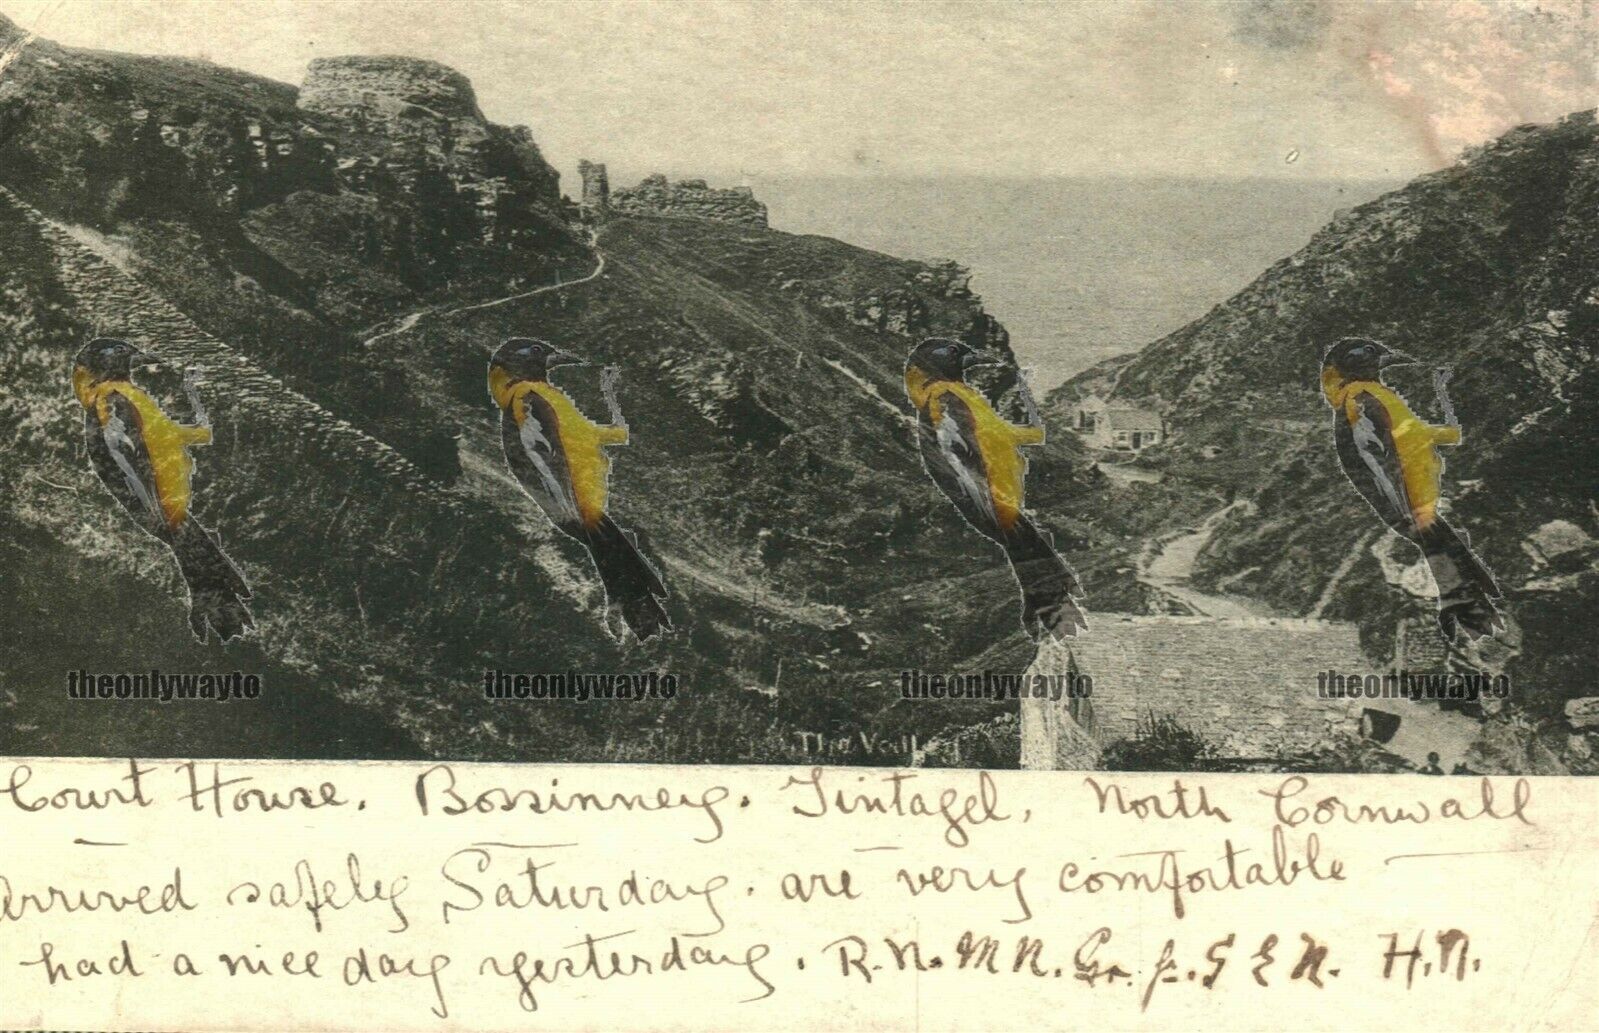 theonlywayto theonlywayto theonlywayto theonlywayto
The Valley
Court House. Bossinney. Tintagel, North Cornwall
Arrived safely Saturday. are very comfortable
had a nice day yesterday. R.N. M N. H.N.